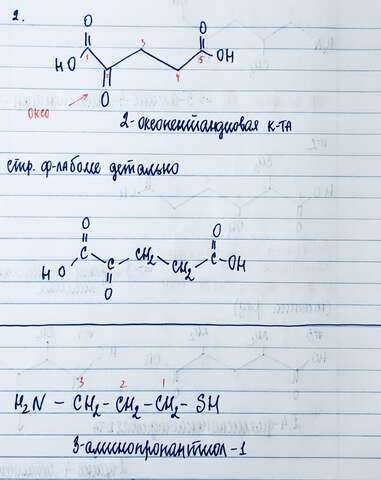 2.
O
HO 1 2 3 4 5 OH
O
O
оксо
2-оксопентандиовая к-та
стр. ф-ла более детально
O
C CH2 O
H O C CH2 C OH
O
3 2 1
H2N – CH2 – CH2 – CH2 – SH
3-аминопропантиол-1